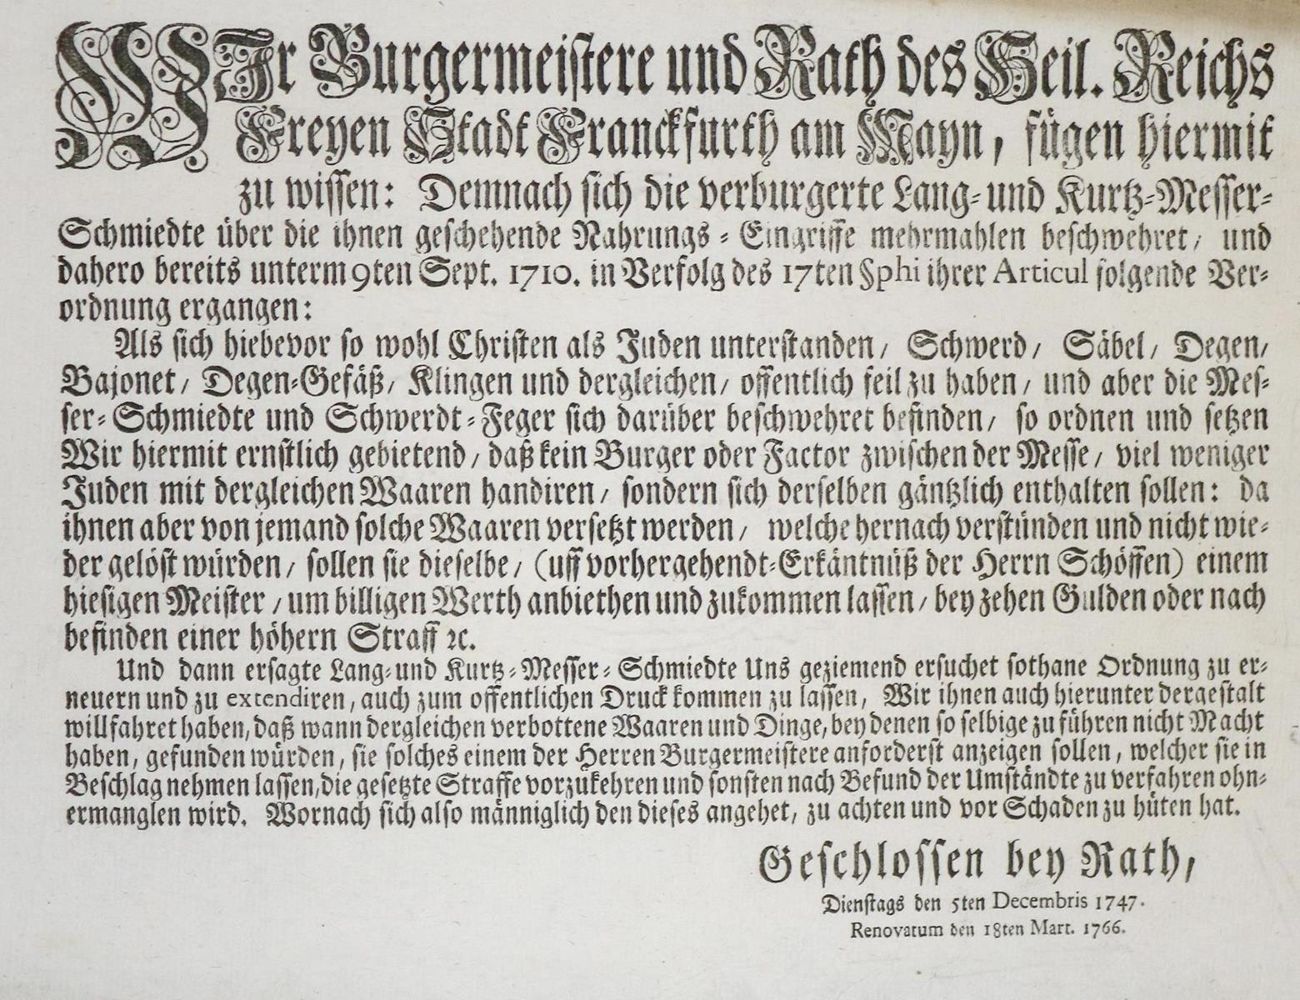 WIr Burgermeistere und Rath des Heil. Reichs
Freyen Stadt Franckfurth am Mayn, fügen hiermit
zu wissen: Demnach sich die verburgerte Lang- und Kurtz-Messer-
Schmiedte über die ihnen geschehende Nahrungs-Eingriffe mehrmahlen beschwehret, und
dahero bereits unterm 9ten Sept. 1710. in Verfolg des 17ten §phi ihrer Articul folgende Ver-
ordnung ergangen:
Als sich hiebevor so wohl Christen als Juden unterstanden, Schwerd, Säbel, Degen,
Bajonet, Degen-Gefäß, Klingen und dergleichen, offentlich feil zu haben, und aber die Mes-
ser-Schmiedte und Schwerdt-Feger sich darüber beschwehret befinden, so ordnen und setzen
Wir hiermit ernstlich gebietend, daß kein Burger oder Factor zwischen der Messe, viel weniger
Juden mit dergleichen Waaren handiren, sondern sich derselben gäntzlich enthalten sollen: da
ihnen aber von jemand solche Waaren versetzt werden, welche hernach verstünden und nicht wie-
der gelöst würden, sollen sie dieselbe, (uff vorhergehendt-Erkäntnüß der Herrn Schöffen) einem
hiesigen Meister, um billigen Werth anbiethen und zukommen lassen, bey zehen Gulden oder nach
befinden einer höhern Straff ꝛc.
Und dann ersagte Lang- und Kurtz-Messer-Schmiedte Uns geziemend ersuchet sothane Ordnung zu er-
neuern und zu extendiren, auch zum offentlichen Druck kommen zu lassen, Wir ihnen auch hierunter dergestalt
willfahret haben, daß wann dergleichen verbottene Waaren und Dinge, bey denen so selbige zu führen nicht Macht
haben, gefunden würden, sie solches einem der Herren Burgermeistere anforderst anzeigen sollen, welcher sie in
Beschlag nehmen lassen, die gesetzte Straffe vorzukehren und sonsten nach Befund der Umständte zu verfahren ohn-
ermanglen wird. Wornach sich also männiglich den dieses angehet, zu achten und vor Schaden zu hüten hat.
Geschlossen bey Rath,
Dienstags den 5ten Decembris 1747.
Renovatum den 18ten Mart. 1766.